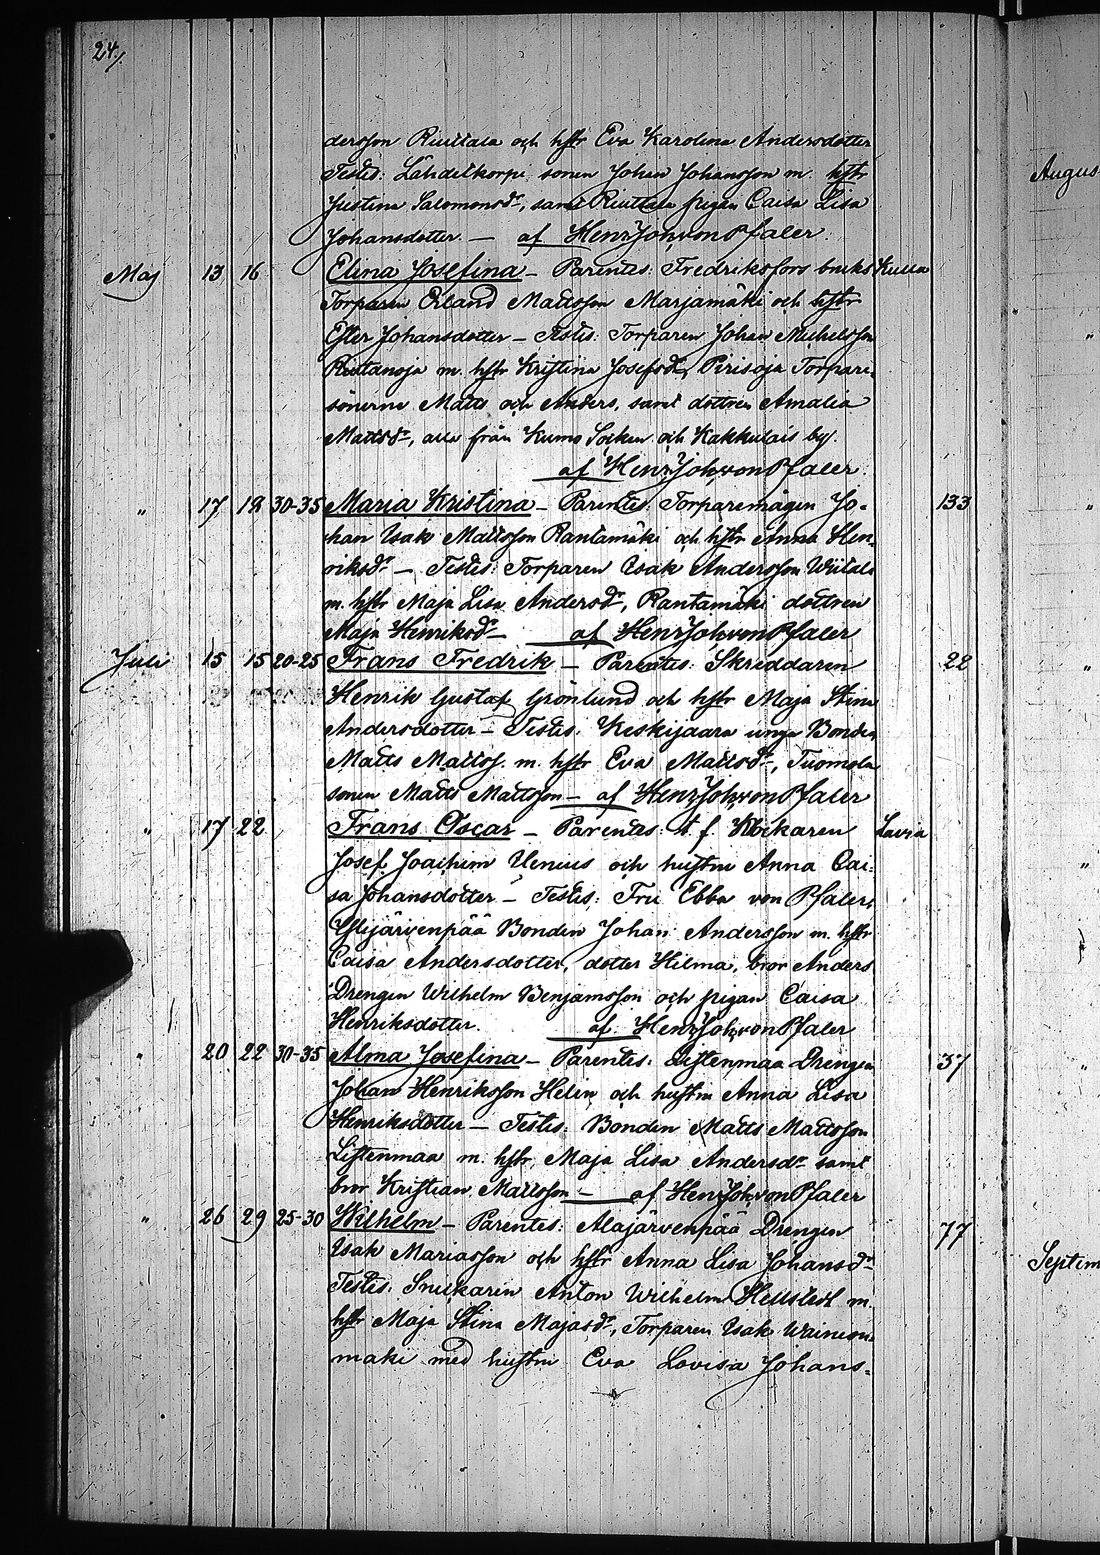 24./
dersson Riuttala och hstr Eva Karolina Andersdotter
Testes: Lähdelkorpi sonen Johan Johansson m. hstr
Justina Salomonsdr, samt Riuttala pigan Caisa Lisa
Johansdotter. — af HenrJoh,vonPfaler.
Maj 13 16 Elina Josefina — Parentes: Fredriksfors bruks Kulla
Torparen Erland Mattsson Marjamäki och hstr
Ester Johansdotter — Testes: Torparen Johan Michelsson
Riutanoja m. hstr Kristina Josefsdr, Pirisoja Torpare-
sönerne Matts och Anders, samt dottren Amalia
Mattsdr, alla från Kumo Socken och Kakkulais by.
af HenrJoh,vonPfaler.
" 17 19 30-35 Maria Kristina — Parentes: Torparemågen Jo- 133
han Isak Mattsson Rantamäki och hstr Anna Hen-
riksdr — Testes: Torparen Isak Andersson Wiitala
m. hstr Maja Lisa Andersdr, Rantamäki dottren
Maja Henriksdr — af HenrJoh,vonPfaler
Juli 15 15 20-25 Frans Fredrik — Parentes: Skräddaren 22
Henrik Gustaf Grönlund och hstr Maja Stina
Andersdotter — Testes: Keskijaara unga Bonden
Matts Mattss. m. hstr Eva Mattsdr, Tuomola
sonen Matts Mattsson — af HenrJoh,vonPfaler
" 17 22 Frans Oscar — Parentes: t. f. Klockaren Lavia
Josef Joachim Venius och hustru Anna Cai-
sa Johansdotter — Testes: Fru Ebba von Pfaler,
Ylijärvenpää Bonden Johan Andersson m. hstr
Caisa Andersdotter, dotter Hilma, bror Anders
Drengen Wilhelm Benjamsson och pigan Caisa
Henriksdotter. af HenrJoh,vonPfaler
" 20 22 30-35 Alma Josefina — Parentes: Listenmaa Drengen 37
Johan Henriksson Helin och hustru Anna Lisa
Henriksdotter — Testes: Bonden Matts Mattsson
Listenmaa m. hstr, Maja Lisa Andersdr samt
bror Kristian Mattsson — af HenrJoh,vonPfaler
" 26 29 25-30 Wilhelm — Parentes: Alajärvenpää Drengen 77
Isak Mariasson och hstr Anna Lisa Johansdr
Testes: Snickaren Anton Wilhelm Hellstedt m.
hstr Maja Stina Majasdr, Torparen Isak Wainion-
mäki med hustru Eva Lovisa Johans-
Augus
"
"
"
"
"
Septem